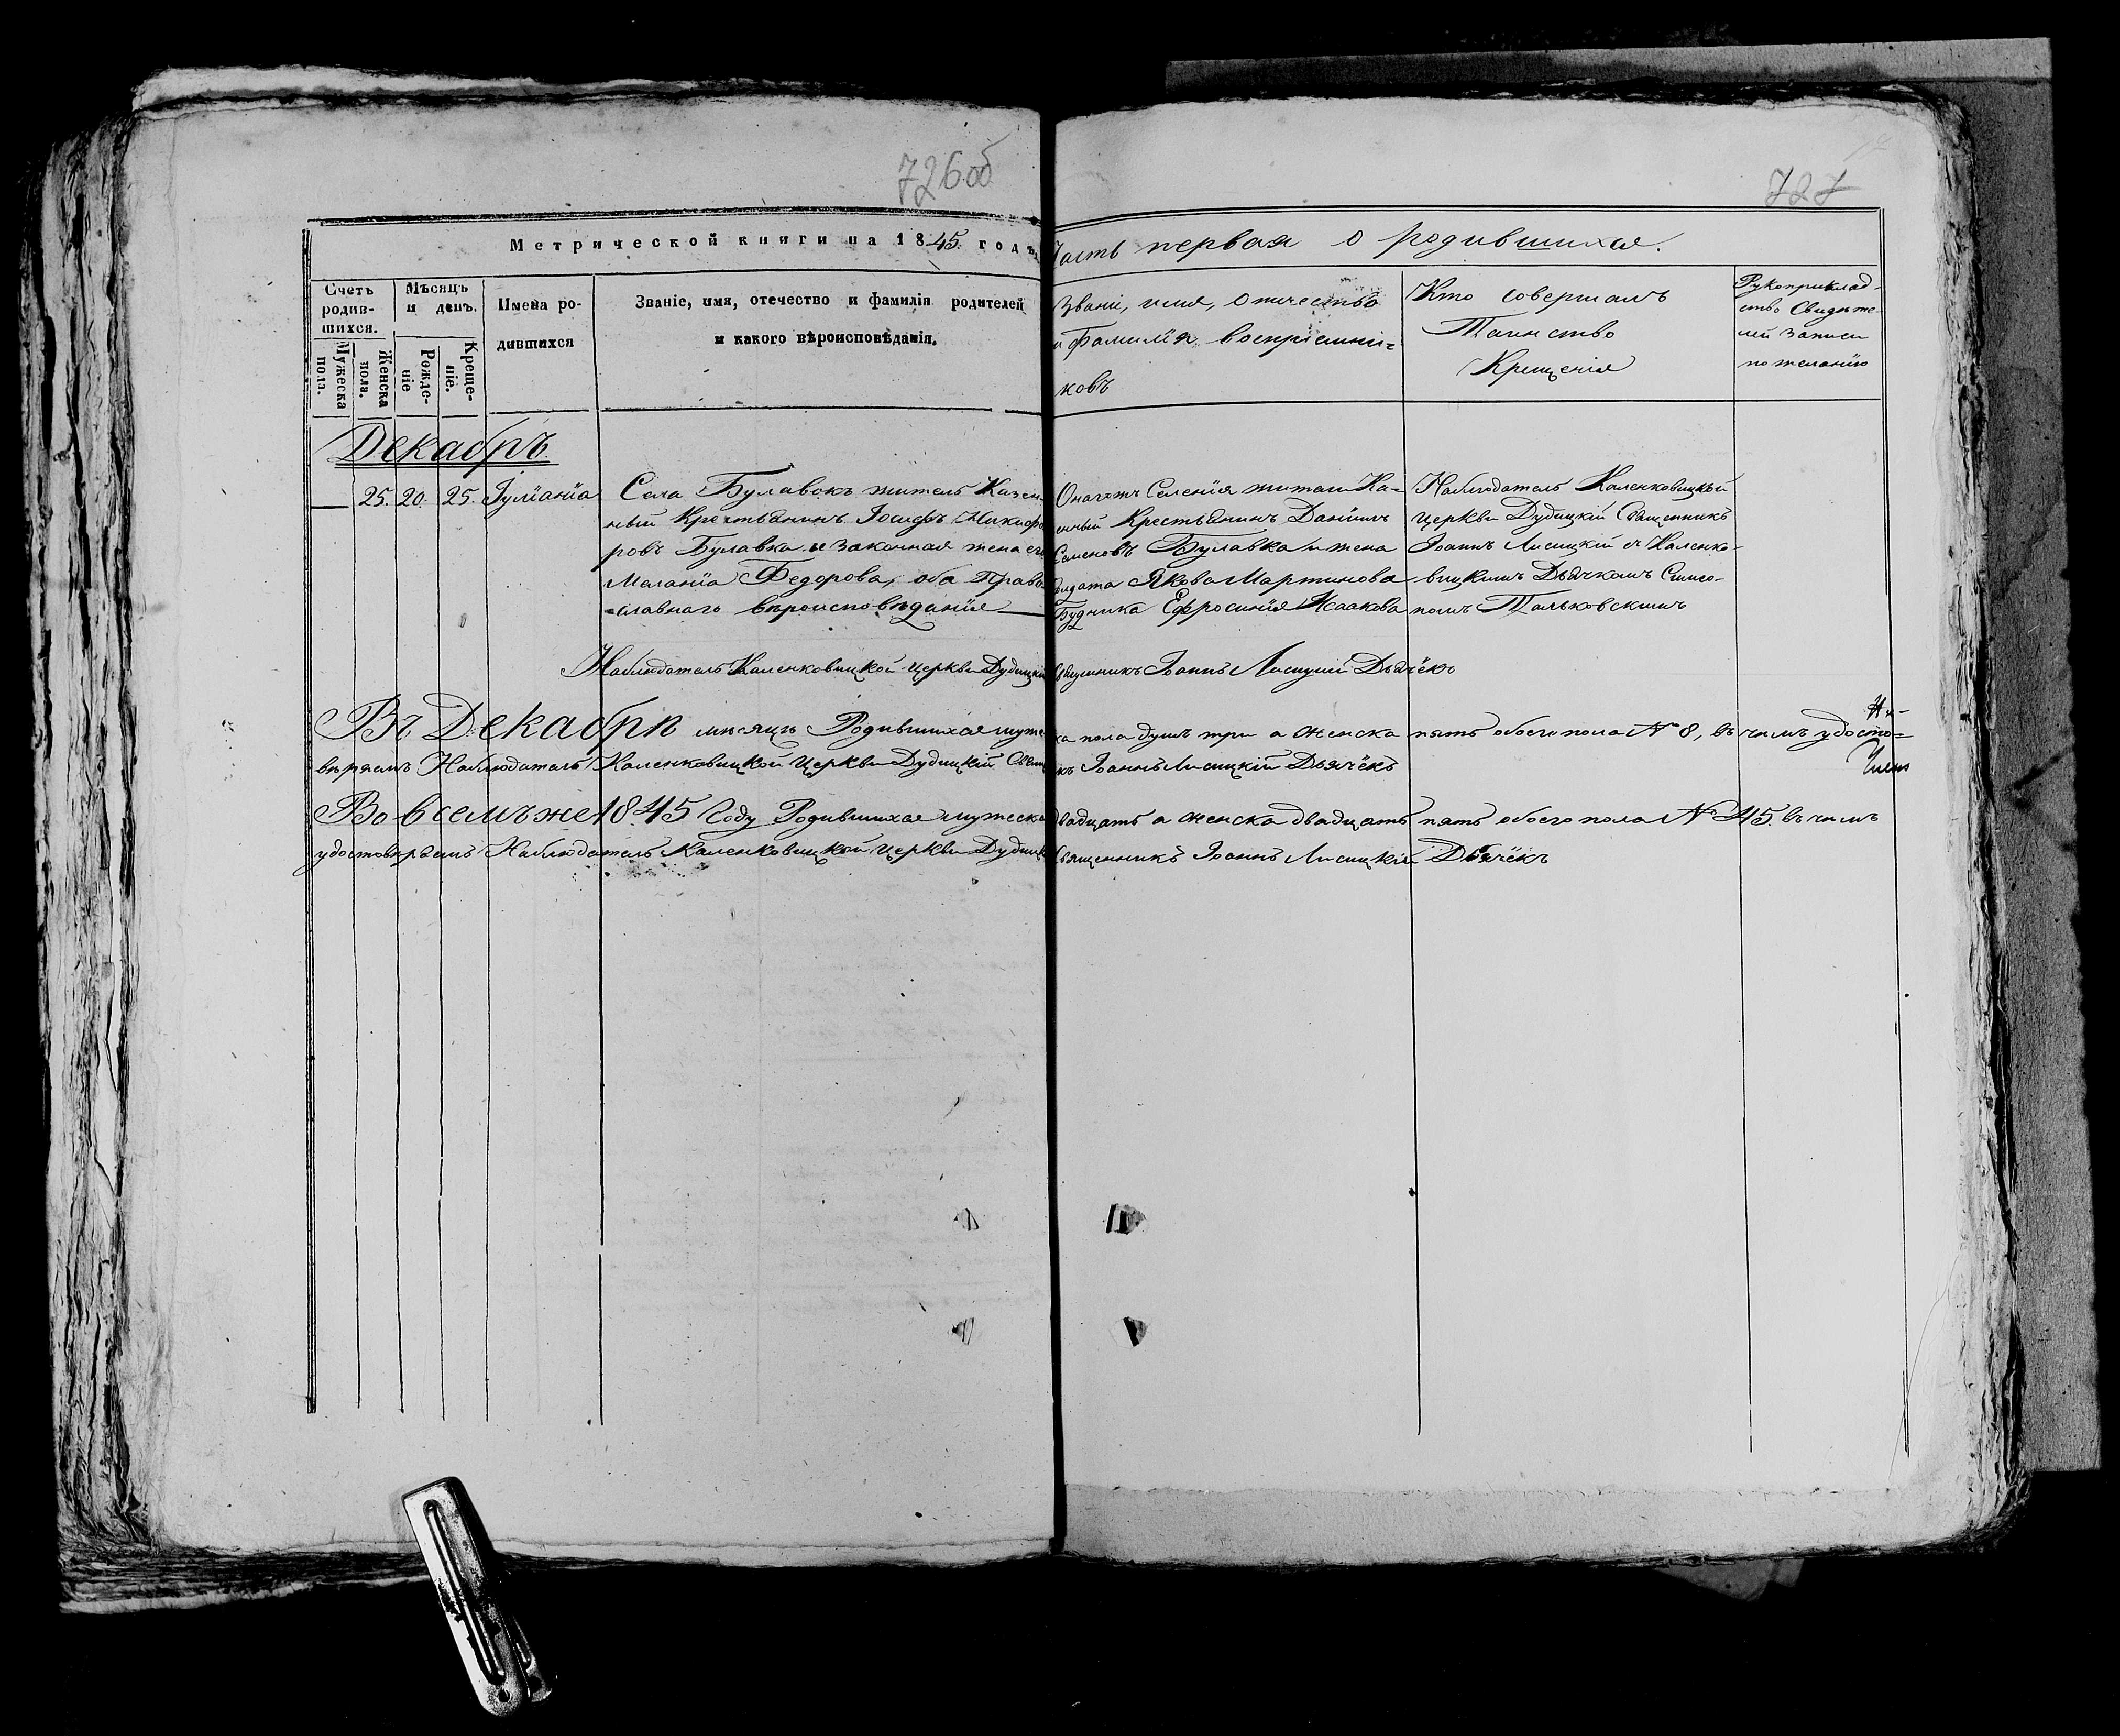 726 об
727
Метрической книги на 1845 годъ
Часть первая о родившихся.
Счетъ родив-шихся.
Мѣсяцъ и день.
Имена ро-
дившихся
Званіе, имя, отечество и фамилія родителей
и какого вѣроисповѣданія.
Мужеска пола.
Женска пола.
Рождс-ніе
Креще-ніе.
Званіе, имя, отчество
и Фамилія воспріемни=
ковъ
Кто совершалъ
Таинство
Крещенія
Рукоприклад-
ство Свидѣте-
лей записи
по желанію
Декабрь
— 25. 20. 25. Іуліанія
Села Булавокъ житель Казен-
ный Крестьянинъ Іосифъ Никифо
ровъ Булавка и законная жена его
Меланія Федорова, оба Право
=славнаго вѣроисповѣданія
Онагожъ Селенія житель Ка=
енный Крестьянинъ Даніилъ
Семеновъ Булавка и жена
Солдата Якова Мартинова
Будника Ефросинія Исаакова
Наблюдатель Каленковицкой
Церкви Дудицкій Священникъ
Іоаннъ Лисицкій съ Каленко-
вицкимъ Дьячкомъ
Тальковскимъ
Наблюдатель Каленковицкой Церкви Дудицкій Священникъ Іоаннъ Лисицкій Дьячёкъ
Въ Декабрѣ мѣсяцѣ Родившихся мужеска пола душъ три а женска пять обоего пола № 8, въ чемъ удосто=
вѣряемъ Наблюдатель Каленковицкой Церкви Дудицкій Священникъ Іоаннъ Лисицкій Дьячёкъ
Во всемъ же 1845 Году Родившихся мужеска двадцать а женска двадцать пять обоего пола № 45. въ чемъ
удостовѣряемъ Наблюдатель Каленковицкой Церкви Дудицкій Священникъ Іоаннъ Лисицкій Дьячёкъ